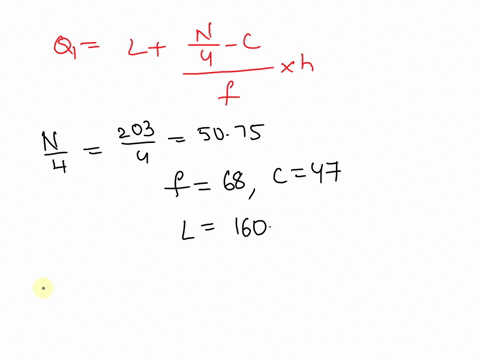 Q₁ = L + (N/4 - C)/f × h
N/4 = 203/4 = 50.75
f = 68, C = 47
L = 160.